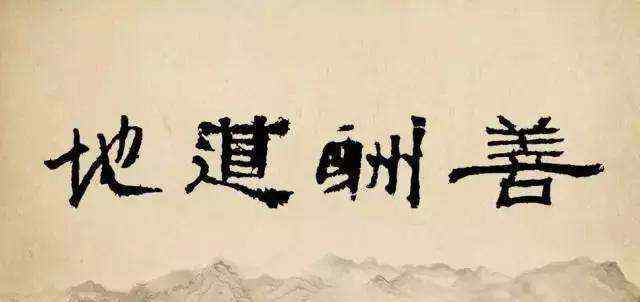 地道酬善